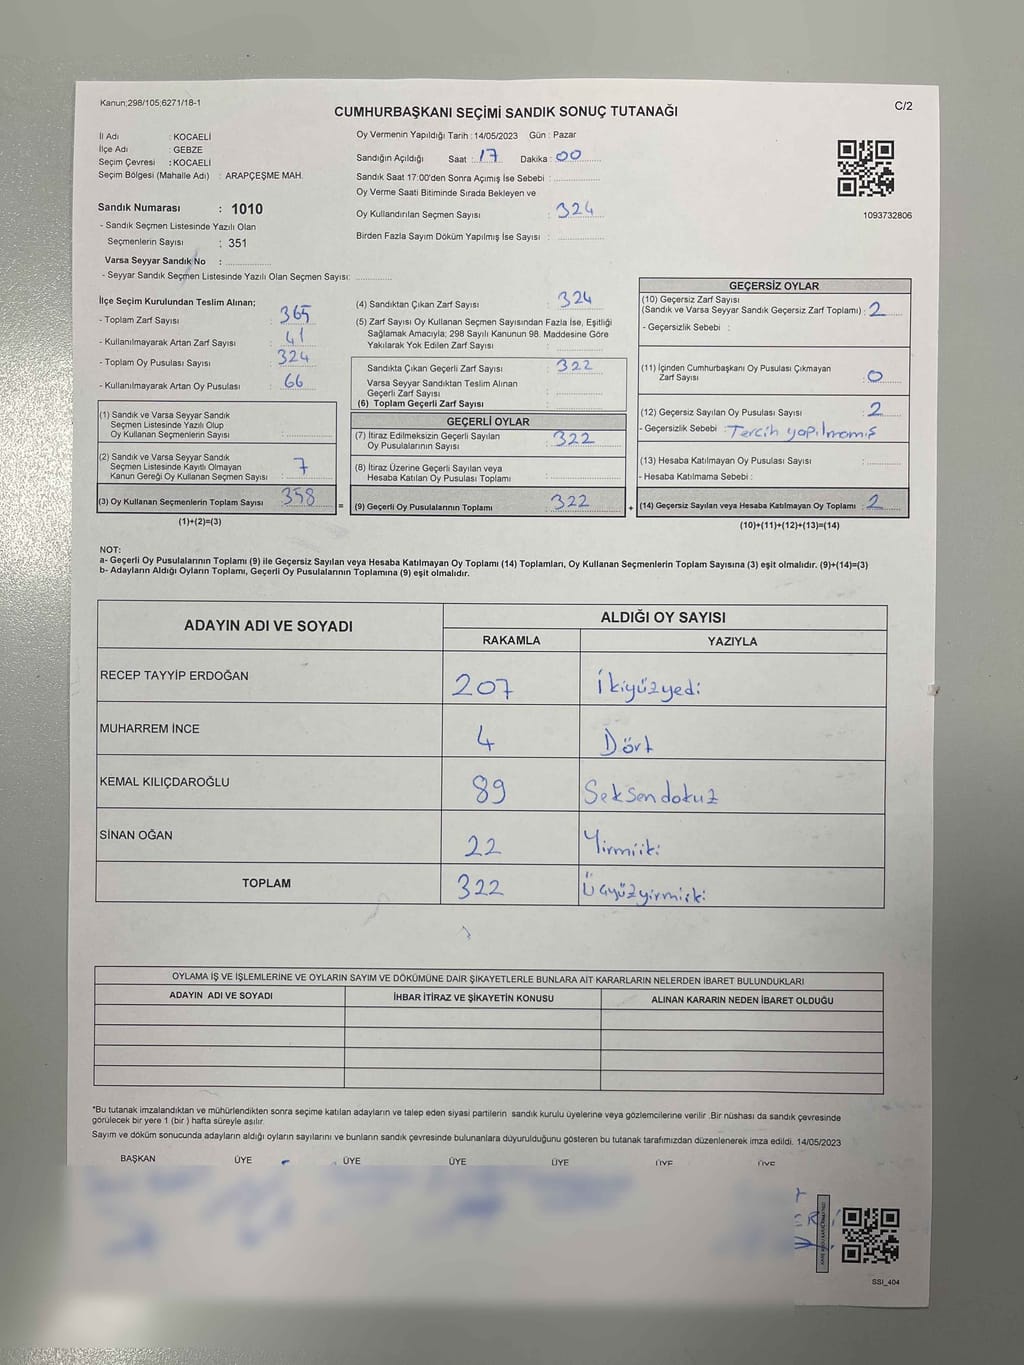 Kanun;298/105;6271/18-1
C/2
CUMHURBAŞKANI SEÇİMİ SANDIK SONUÇ TUTANAĞI
İl Adı : KOCAELİ
İlçe Adı : GEBZE
Seçim Çevresi : KOCAELİ
Seçim Bölgesi (Mahalle Adı) : ARAPÇEŞME MAH.
Sandık Numarası : 1010
- Sandık Seçmen Listesinde Yazılı Olan
Seçmenlerin Sayısı : 351
Varsa Seyyar Sandık No :
- Seyyar Sandık Seçmen Listesinde Yazılı Olan Seçmen Sayısı:
Oy Vermenin Yapıldığı Tarih : 14/05/2023 Gün : Pazar
Sandığın Açıldığı Saat : 17 Dakika : 00
Sandık Saat 17:00'den Sonra Açımış İse Sebebi :
Oy Verme Saati Bitiminde Sırada Bekleyen ve
Oy Kullandırılan Seçmen Sayısı : 324
Birden Fazla Sayım Döküm Yapılmış İse Sayısı :
1093732806
İlçe Seçim Kurulundan Teslim Alınan;
- Toplam Zarf Sayısı : 365
- Kullanılmayarak Artan Zarf Sayısı : 41
- Toplam Oy Pusulası Sayısı : 324
- Kullanılmayarak Artan Oy Pusulası : 66
(1) Sandık ve Varsa Seyyar Sandık
Seçmen Listesinde Yazılı Olup
Oy Kullanan Seçmenlerin Sayısı :
(2) Sandık ve Varsa Seyyar Sandık
Seçmen Listesinde Kayıtlı Olmayan
Kanun Gereği Oy Kullanan Seçmen Sayısı : 7
(3) Oy Kullanan Seçmenlerin Toplam Sayısı : 358
(1)+(2)=(3)
(4) Sandıktan Çıkan Zarf Sayısı : 324
(5) Zarf Sayısı Oy Kullanan Seçmen Sayısından Fazla İse, Eşitliği
Sağlamak Amacıyla; 298 Sayılı Kanunun 98. Maddesine Göre
Yakılarak Yok Edilen Zarf Sayısı :
Sandıkta Çıkan Geçerli Zarf Sayısı : 322
Varsa Seyyar Sandıktan Teslim Alınan
Geçerli Zarf Sayısı :
(6) Toplam Geçerli Zarf Sayısı :
GEÇERLİ OYLAR
(7) İtiraz Edilmeksizin Geçerli Sayılan
Oy Pusulalarının Sayısı : 322
(8) İtiraz Üzerine Geçerli Sayılan veya
Hesaba Katılan Oy Pusulası Toplamı :
= (9) Geçerli Oy Pusulalarının Toplamı : 322
GEÇERSİZ OYLAR
(10) Geçersiz Zarf Sayısı
(Sandık ve Varsa Seyyar Sandık Geçersiz Zarf Toplamı) : 2
- Geçersizlik Sebebi :
(11) İçinden Cumhurbaşkanı Oy Pusulası Çıkmayan
Zarf Sayısı : 0
(12) Geçersiz Sayılan Oy Pusulası Sayısı : 2
- Geçersizlik Sebebi : Tercih yapılmamış
(13) Hesaba Katılmayan Oy Pusulası Sayısı :
- Hesaba Katılmama Sebebi :
+ (14) Geçersiz Sayılan veya Hesaba Katılmayan Oy Toplamı : 2
(10)+(11)+(12)+(13)=(14)
NOT:
a- Geçerli Oy Pusulalarının Toplamı (9) ile Geçersiz Sayılan veya Hesaba Katılmayan Oy Toplamı (14) Toplamları, Oy Kullanan Seçmenlerin Toplam Sayısına (3) eşit olmalıdır. (9)+(14)=(3)
b- Adayların Aldığı Oyların Toplamı, Geçerli Oy Pusulalarının Toplamına (9) eşit olmalıdır.
ADAYIN ADI VE SOYADI
ALDIĞI OY SAYISI
RAKAMLA YAZIYLA
RECEP TAYYİP ERDOĞAN 207 İkiyüzyedi
MUHARREM İNCE 4 Dört
KEMAL KILIÇDAROĞLU 89 Seksendokuz
SİNAN OĞAN 22 Yirmiiki
TOPLAM 322 Üçyüzyirmiiki
OYLAMA İŞ VE İŞLEMLERİNE VE OYLARIN SAYIM VE DÖKÜMÜNE DAİR ŞİKAYETLERLE BUNLARA AİT KARARLARIN NELERDEN İBARET BULUNDUKLARI
ADAYIN ADI VE SOYADI İHBAR İTİRAZ VE ŞİKAYETİN KONUSU ALINAN KARARIN NEDEN İBARET OLDUĞU
"Bu tutanak imzalandıktan ve mühürlendikten sonra seçime katılan adayların ve talep eden siyasi partilerin sandık kurulu üyelerine veya gözlemcilerine verilir .Bir nüshası da sandık çevresinde
görülecek bir yere 1 (bir ) hafta süreyle asılır.
Sayım ve döküm sonucunda adayların aldığı oyların sayılarını ve bunların sandık çevresinde bulunanlara duyurulduğunu gösteren bu tutanak tarafımızdan düzenlenerek imza edildi. 14/05/2023
BAŞKAN ÜYE ÜYE ÜYE ÜYE ÜYE ÜYE
SSI_404